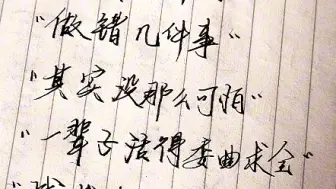 "做错几件事"
"其实没那么可怕"
"一辈子活得委曲求全"